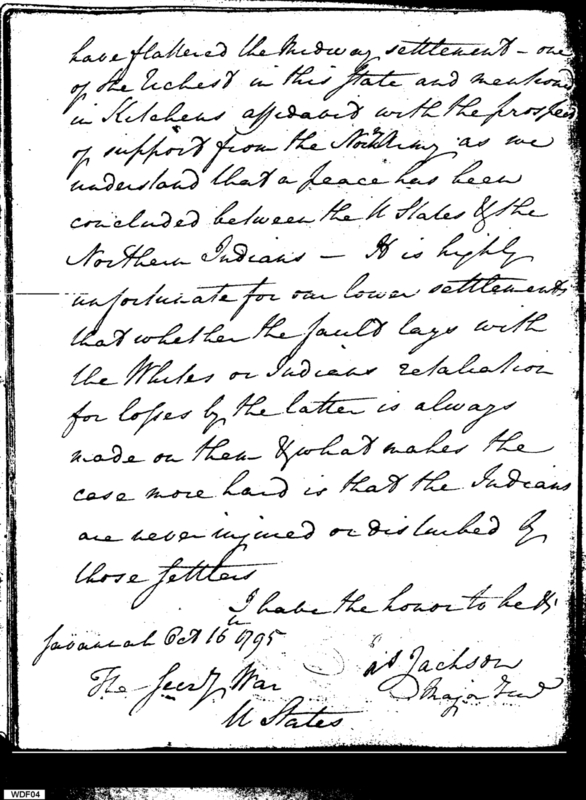 have flattered the Midway settlement - one
of the richest in this State and mentiond
in Kitchens affidavit with the prospect
of support from the Northn Army as we
understand that a peace has been
concluded between the U States & the
Northern Indians - It is highly
unfortunate for our lower settlements
that whether the fault lays with
the Whites or Indians retaliation
for losses by the latter is always
made on them & what makes the
case more hard is that the Indians
are never injured or disturbed by
those Settlers
I have the honor to be &c
Savannah Oct 16th 1795
Jackson
The Secry War
Major Genl
U States
WDF04